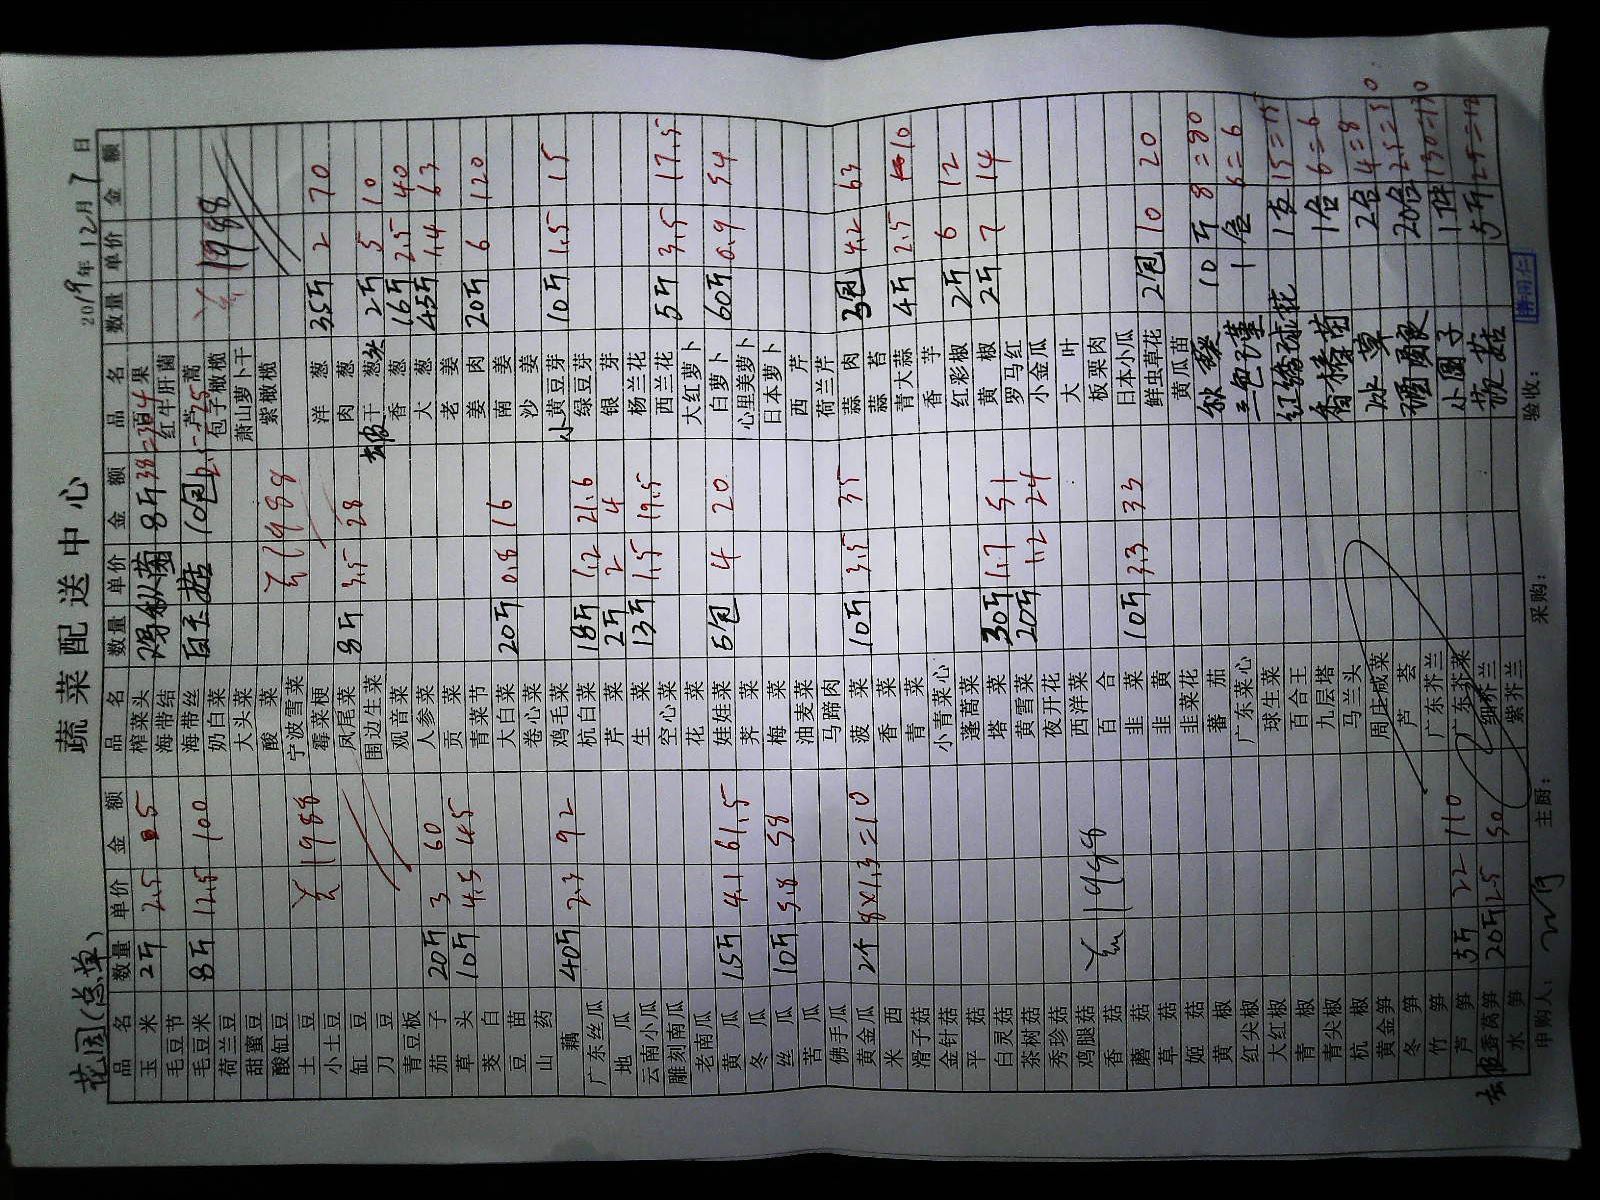 蔬菜配送中心
花园(总单) 2019年12月7日
品名 数量 单价 金额 品名 数量 单价 金额 品名 数量 单价 金额
玉米 2斤 2.5 5 榨菜头 8斤
毛豆节 海带结 红牛肝菌
毛豆米 8斤 12.5 100 海带丝 10包 芦蒿
荷兰豆 奶白菜 包子橄榄 1988
甜蜜豆 大头菜 萧山萝卜干
酸缸豆 酸菜 1988 紫橄榄
土豆 1988 宁波雪菜
小土豆 霉菜梗 洋葱 35斤 2 70
缸豆 凤尾菜 8斤 3.5 28 肉葱
刀豆 围边生菜 干葱头 2斤 5 10
青豆板 观音菜 香葱 16斤 2.5 40
茄子 20斤 3 60 人参菜 大葱 45斤 1.4 63
草头 10斤 4.5 45 贡菜 老姜
茭白 青菜节 姜肉 20斤 6 120
豆苗 大白菜 20斤 0.8 16 南姜
山药 卷心菜 沙姜
藕 40斤 2.3 92 鸡毛菜 小黄豆芽 10斤 1.5 15
广东丝瓜 杭白菜 18斤 1.2 21.6 绿豆芽
地瓜 芹菜 2斤 2 4 银芽
云南小瓜 生菜 13斤 1.5 19.5 杨兰花
雕刻南瓜 空心菜 西兰花 5斤 3.5 17.5
老南瓜 花菜 大红萝卜
黄瓜 15斤 4.1 61.5 娃娃菜 5包 4 20 白萝卜 60斤 0.9 54
冬瓜 荠菜 心里美萝卜
丝瓜 10斤 5.8 58 梅菜 日本萝卜
苦瓜 油麦菜 西芹
佛手瓜 马蹄肉 荷兰芹
黄金瓜 2个 8×1.3=10 菠菜 10斤 3.5 35 蒜肉 3包 4.2 63
米西 香菜 蒜苔
滑子菇 青菜 青大蒜 4斤 2.5 10
金针菇 小青菜心 香芋
平菇 蓬蒿菜 红彩椒 2斤 6 12
白灵菇 塔菜 30斤 1.7 51 黄椒 2斤 7 14
茶树菇 黄雪菜 20斤 1.2 24 罗马红
秀珍菇 夜开花 小金瓜
鸡腿菇 1988 西洋菜 大叶
香菇 百合 板栗肉
蘑菇 韭菜 10斤 3.3 33 日本小瓜
草菇 韭黄 鲜虫草花 2包 10 20
姬菇 韭菜花 黄瓜苗
黄椒 蕃茄 秋葵 10斤 8=80
红尖椒 广东菜心 三色堇 1盒 6=6
大红椒 球生菜 红绣球花 1支 15=15
青椒 百合王 香椿苗 1合 6=6
青尖椒 九层塔 冰草 2合 4=8
杭椒 马兰头
黄金笋 周庄咸菜 20合 25=50
冬笋 芦荟 小圆子 1件 130=130
竹笋 广东芥兰 5斤 2.5=12
芦笋 5斤 22 110 广东芥菜
去皮香莴笋 20斤 2.5 50 细芥兰
水笋 紫芥兰
申购人: 主厨: 采购: 验收: